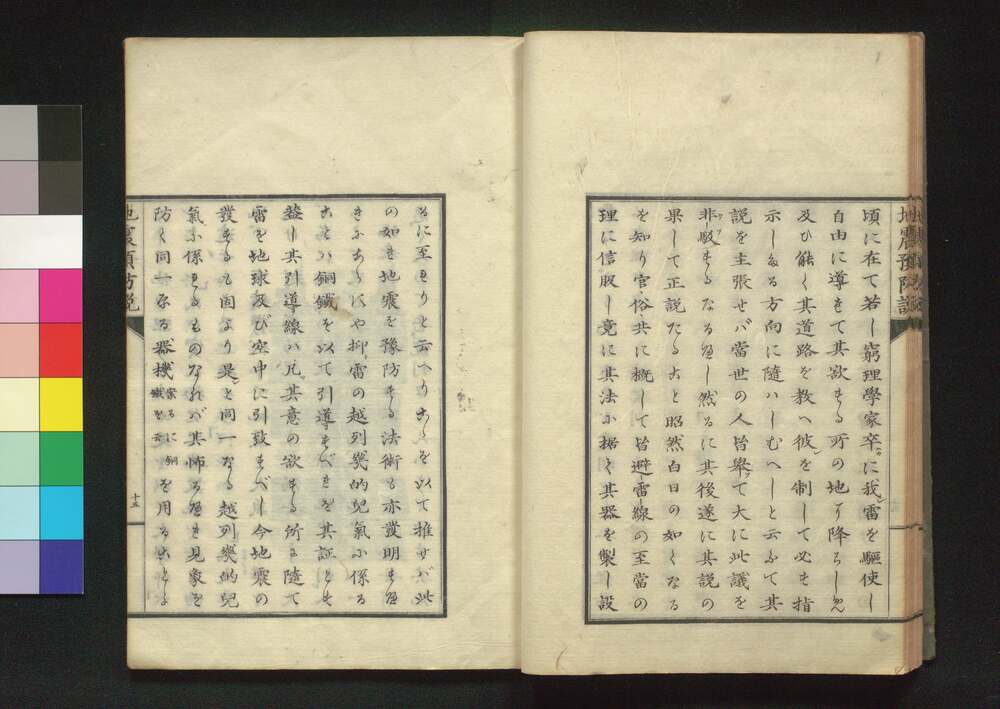 地震預防說
頃に在て若し窮理學家卒ニに我レ雷を驅使し
自由に導きて其欲する所の地より降らしめん
及ひ能く其道路を教へ彼レを制して必す指
示しある方向に隨ハしむへしと云ふて其
說を主張せバ當世の人皆擧ツて大に此議を
非駁するなるべし然るに其後遂に其說の
果して正說たること昭然白日の如くなる
を知り官俗共に概して皆避雷線の至當の
理に信服し竟に其法に据て其器を製し設
るに至れりと云へり
の如き地震を豫防する法術も亦發明すべ
きにあらにや抑雷の越列幾的兒氣に係る
ことハ銅鐵を以て引導すべきを其証とす
蓋し其引導線ハ凡其意の欲する所に隨て
雷を地球及び空中に引致すべし今地震の
發するも固より是と同一なる越列幾的兒
氣に係れるものなれバ其怖るべき見象を
防く同一なる器機
を用ることよ
地震預防說
十五